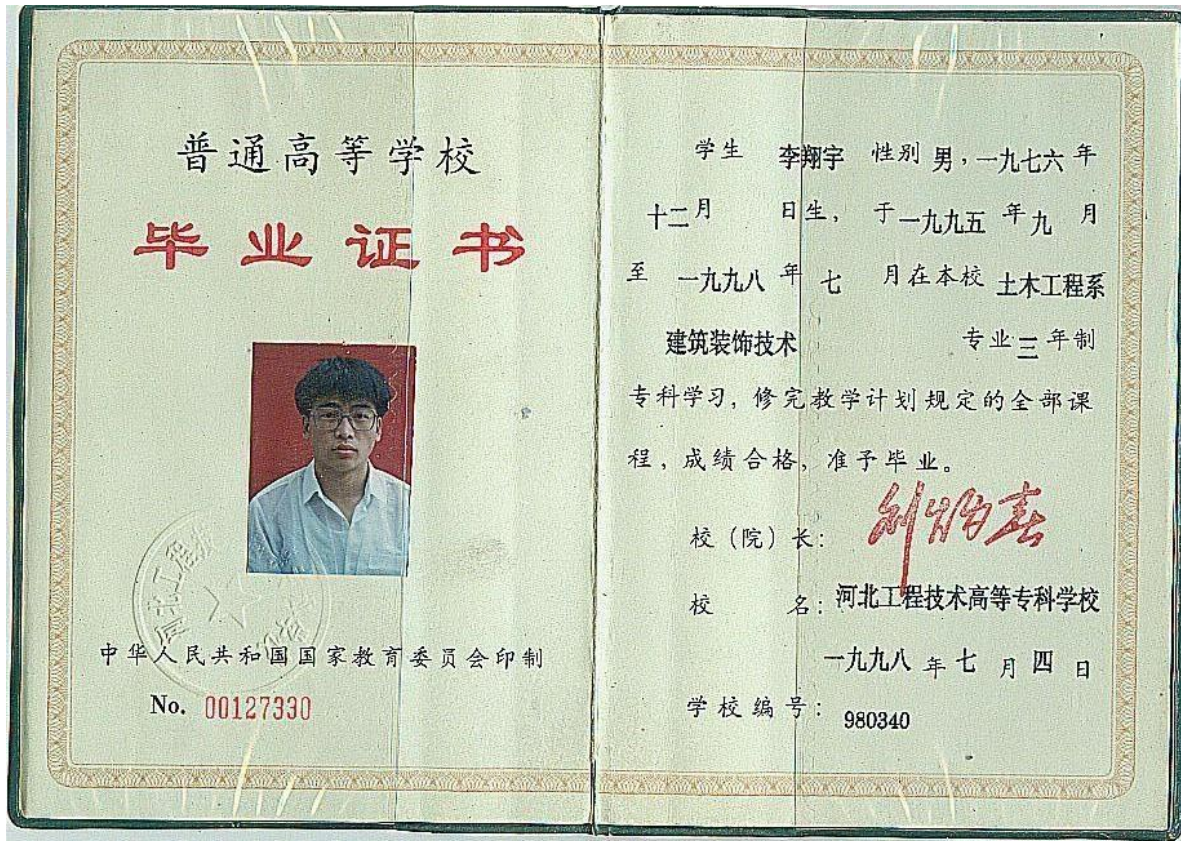 普通高等学校
毕业证书
中华人民共和国国家教育委员会印制
No. 00127330
学生 李翔宇 性别 男，一九七六 年
十二月 日生，于一九九五 年九 月
至 一九九八 年 七 月在本校 土木工程系
建筑装饰技术 专业三年制
专科学习，修完教学计划规定的全部课
程，成绩合格，准予毕业。
校（院）长：
校 名：河北工程技术高等专科学校
一九九八 年 七 月 四 日
学校编号：980340